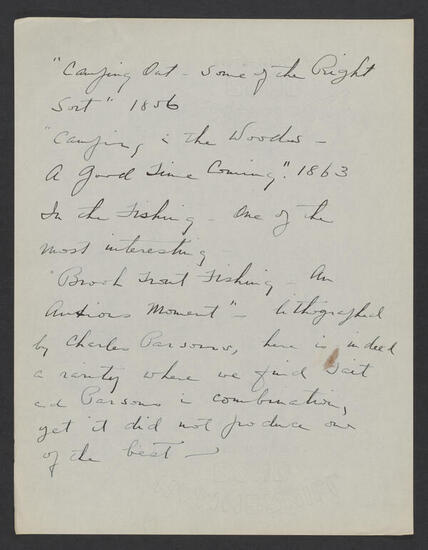 "Camping Out - Some of the Right
Sort" 1856
"Camping in the Woods -
A Good Time Coming". 1863
In the Fishing - One of the
most interesting -
"Brook Trout Fishing - An
Anxious Moment" - lithographed
by Charles Parsons, here is indeed
a rarity where we find Tait
and Parsons in combination,
yet it did not produce one
of the best -